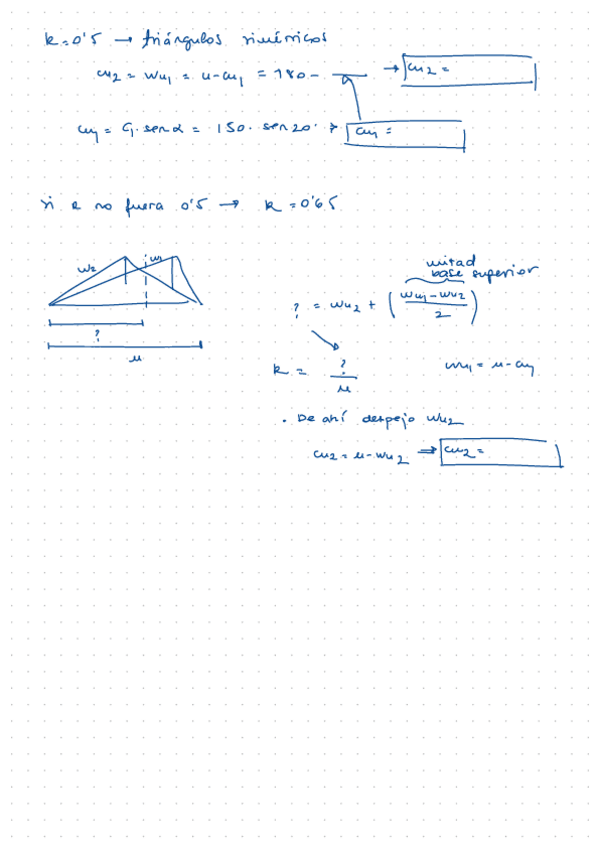 k = 0'5 → triángulos simétricos
cu2 = wu1 = u - cu1 = 180 - → cu2 =
cu1 = C1 · sen α = 150 · sen 20 · → cu1 =
si k no fuera 0'5 → k = 0'65
w2 w1
mitad
base superior
? = wu2 + ( wu1 - wu2 / 2 )
?
u
k = ? / u wu1 = u - cu1
· De ahí despejo wu2
cu2 = u - wu2 ⇒ cu2 =